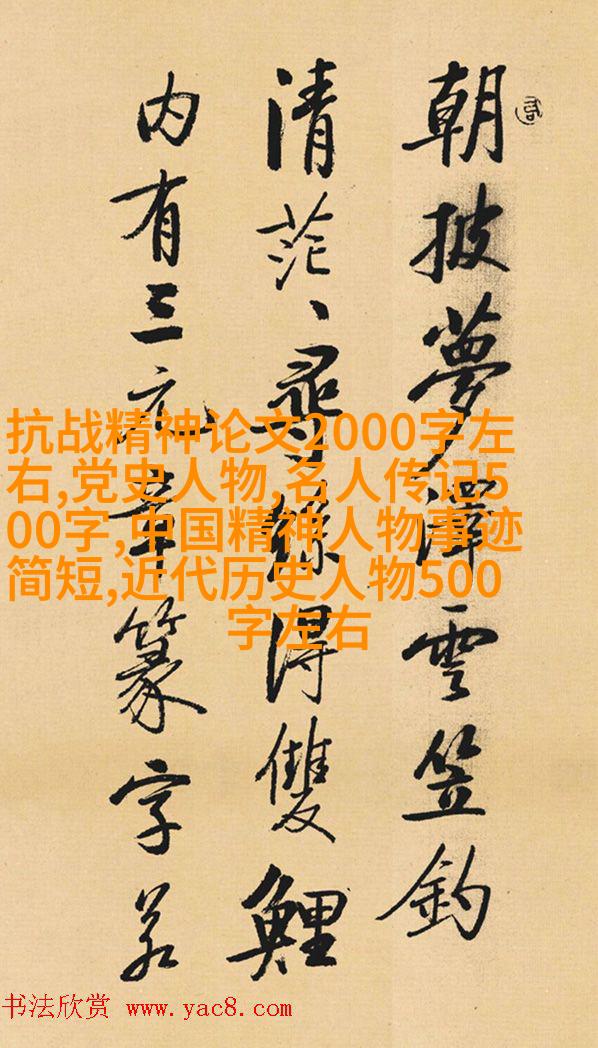 朝披夢澤雲笠釣
清茫、尋絲得雙鯉
内有三元章篆字若
抗战精神论文2000字左
右,党史人物,名人传记5
00字,中国精神人物事迹
简短,近代历史人物500
字左右
书法欣赏 www.yac8.com